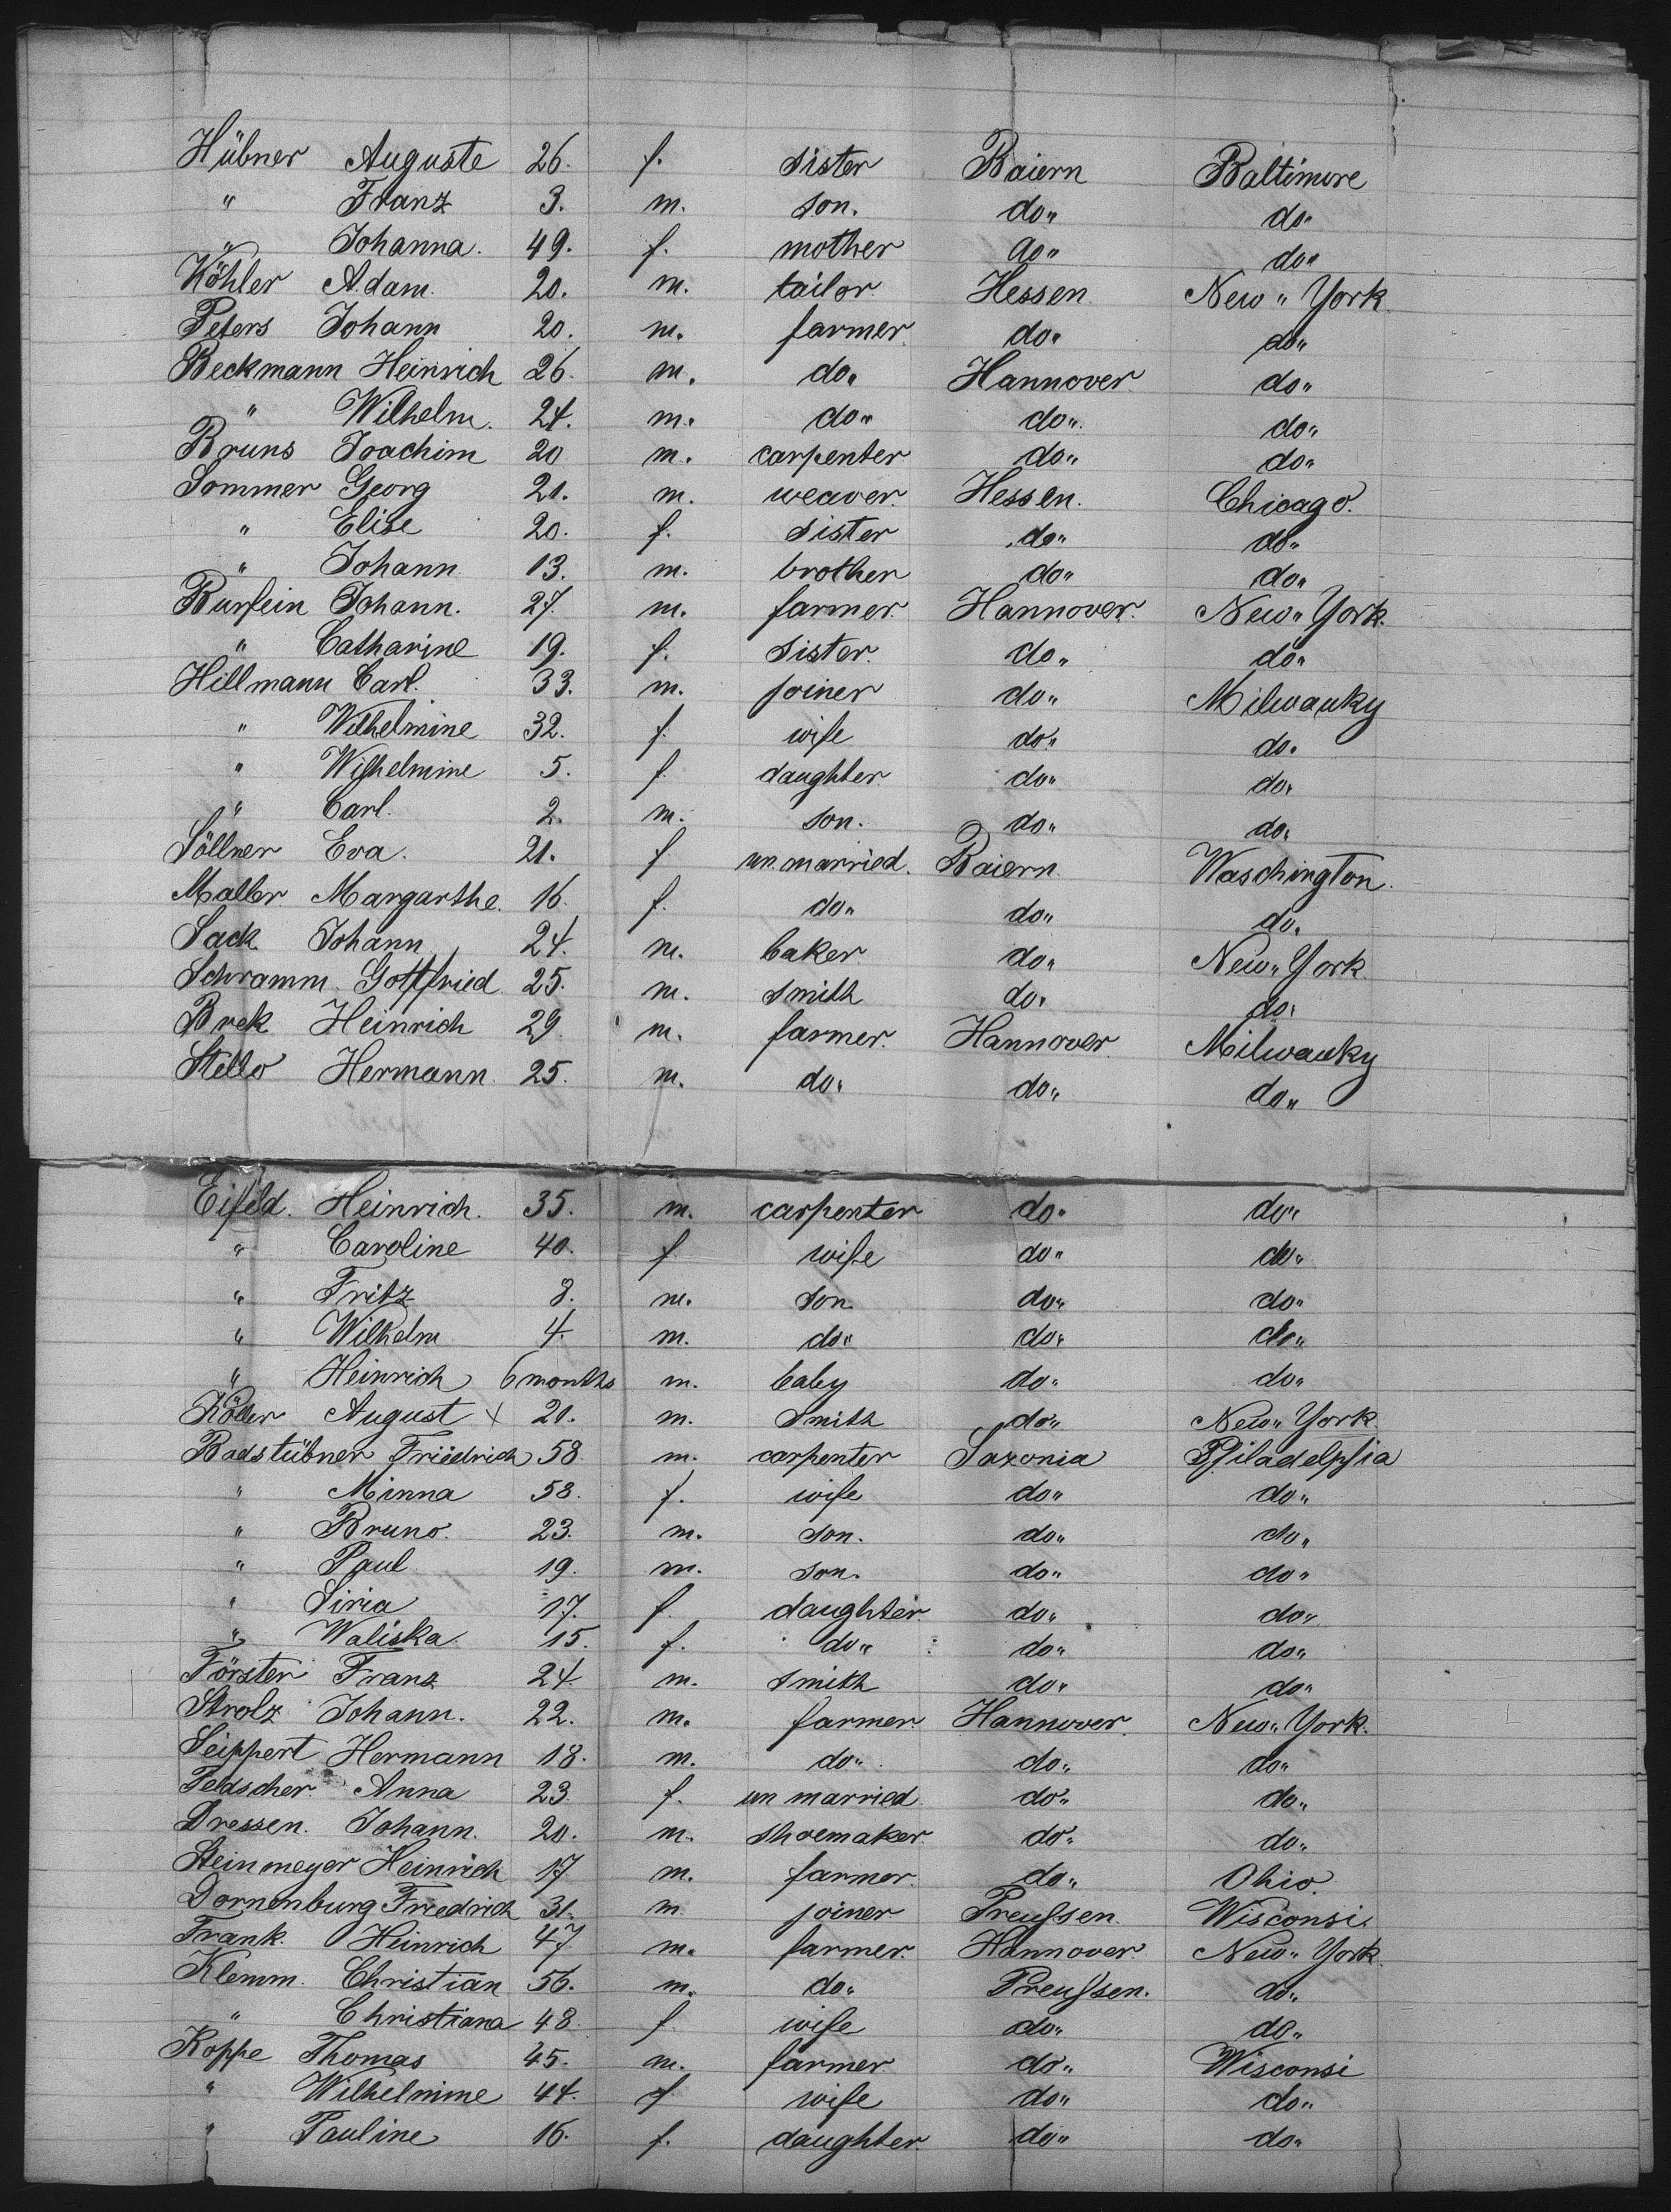 Hübner Auguste 26. f. sister Baiern Baltimore
" Franz 3. m. son. do" do"
" Johanna. 49. f. mother do" do"
Köhler Adam. 20. m. tailor Hessen New" York.
Peters Johann 20. m. farmer. do" do"
Beckmann Heinrich 26. m. do" Hannover do"
" Wilhelm. 24. m. do" do" do"
Bruns Joachim 20 m. carpenter do" do"
Sommer Georg 21. m. weaver. Hessen. Chicago.
" Elise 20. f. sister do" do"
" Johann 13. m. brother do" do"
Burfein Johann. 27. m. farmer. Hannover. New" York.
" Catharine 19. f. sister. do" do"
Hillmann Carl. 33. m. joiner do" Milwauky
" Wilhelmine 32. f. wife do" do"
" Wilhelmine 5. f. daughter do" do"
" Carl. 2. m. son. do" do"
Söllner Eva. 21. f un married. Baiern. Waschington.
Maller Margarthe. 16. f. do" do" do"
Sack Johann 24. m. baker do" New" York
Schramm Gottfried 25. m. smith do" do"
Brek Heinrich 29. m. farmer. Hannover. Milwauky
Stello Hermann. 25. m. do" do" do"
Eifeld. Heinrich. 35. m. carpenter do" do"
" Caroline 40. f wife do" do"
" Fritz 8. m. son do" do"
" Wilhelm 4. m. do" do" do"
" Heinrich 6 months m. baby do" do"
Köller August x 21. m. smith do" New" York.
Badstübner Friedrich 58. m. carpenter Saxonia Philadelphia
" Minna 58. f. wife do" do"
" Bruno. 23. m. son. do" do"
" Paul 19. m. son. do" do"
" Siria 17. f. daughter do" do"
" Waliska 15. f. do" do" do"
Förster Franz 24. m. smith do" do"
Strolz Johann. 22. m. farmer Hannover. New" York.
Seippert Hermann 18. m. do" do" do"
Anna 23. f. un married. do" do"
Dressen. Johann. 20. m. shoemaker. do" do"
Steinmeyer Heinrich 17 m. farmer. do" Ohio.
Dornenburg Friedrich 31. m joiner Preußen. Wisconsi.
Frank. Heinrich 47 m. farmer. Hannover. New" York.
Klemm. Christian 56. m. do" Preußen. do"
" Christiana 48. f wife do" do"
Koppe Thomas 45. m. farmer do" Wisconsi
" Wilhelmine 44. f wife do" do"
" Pauline 16. f. daughter do" do"